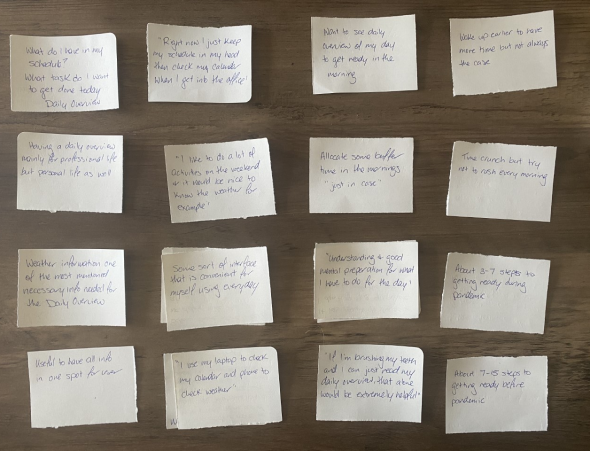 What do I have in my
schedule?
What task do I want
to get done today
Daily Overview
"Right now I just keep
my schedule in my head
then check my calendar
when I get into the office"
Want to see daily
overview of my day
to get ready in the
morning
Wake up earlier to have
more time but not always
the case
Having a daily overview
mainly for professional life
but personal life as well
"I like to do a lot of
activities on the weekend
so it would be nice to
know the weather for
example"
Allocate some buffer
time in the mornings
"just in case"
Time crunch but try
not to rush every morning
Weather information one
of the most mentioned
necessary info needed for
the Daily Overview
Some sort of interface
that is convenient for
myself using everyday
"Understanding & good
mental preparation for what
I have to do for the day"
About 3-7 steps to
getting ready during
pandemic
Useful to have all info
in one spot for user
"I use my laptop to check
my calendar and phone to
check weather"
"If I'm brushing my teeth
and I can just read my
daily overview, that alone
would be extremely helpful"
About 7-15 steps to
getting ready before
pandemic